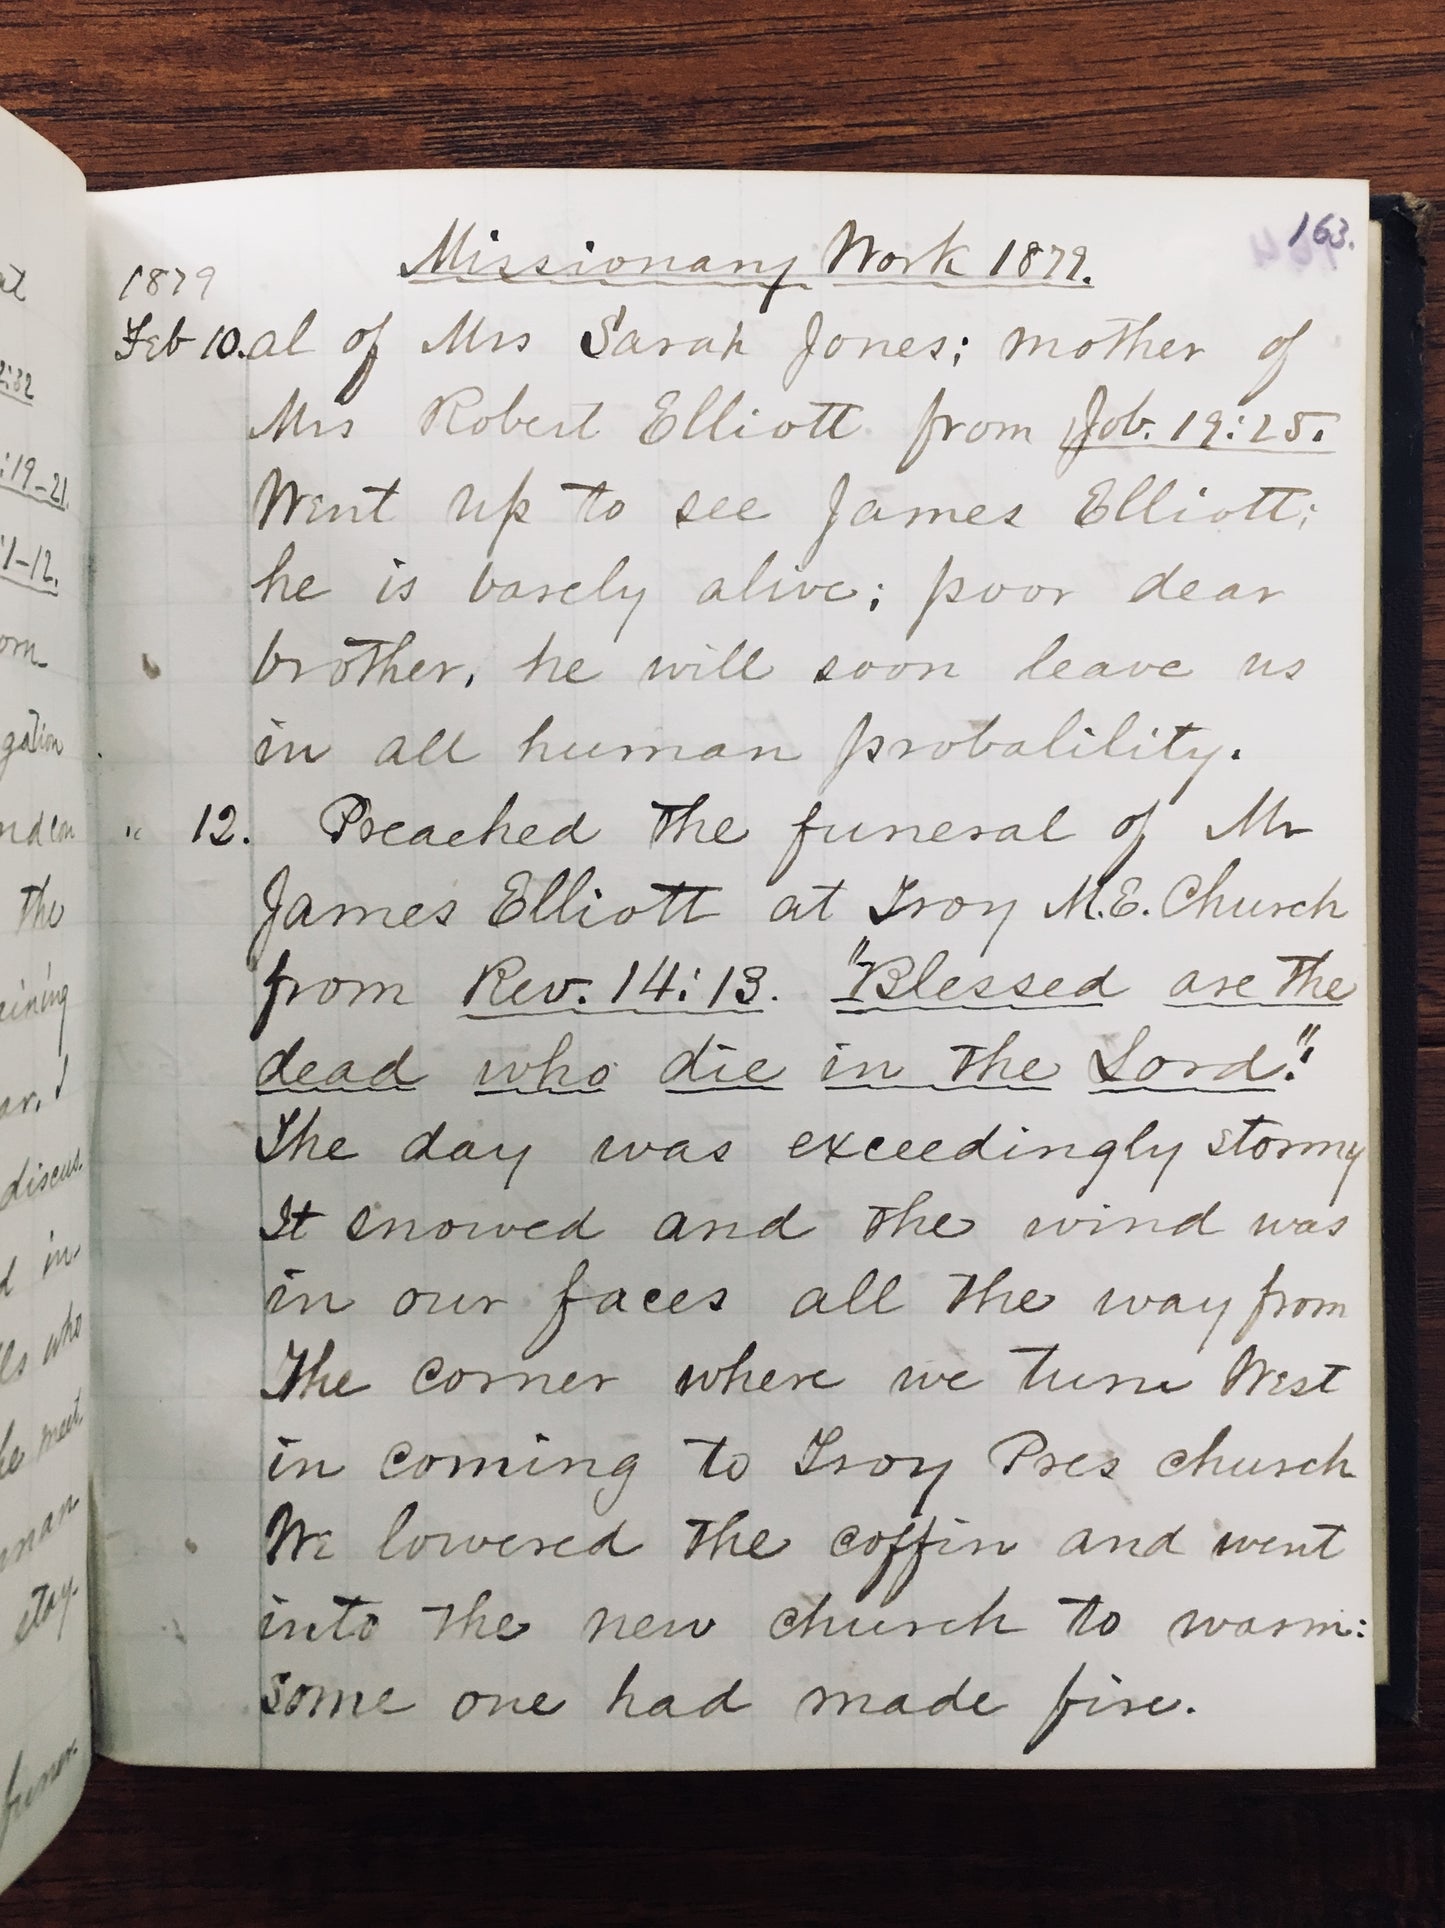 at
2:32
:19-21
:1-12.
orn
gation
The
ar. I
discus
d in-
ls who
he meet
man
stay-
funer-
163.
Missionary Work 1879.
1879
Feb 10. al of Mrs Sarah Jones; mother of
Mrs Robert Elliott from Job. 19:25.
Went up to see James Elliott;
he is barely alive; poor dear
brother, he will soon leave us
in all human probalility.
" 12. Preached the funeral of Mr
James Elliott at Troy M.E. Church
from Rev. 14:13. "Blessed are the
dead who die in the Lord."
The day was exceedingly stormy
It snowed and the wind was
in our faces all the way from
The corner where we turn West
in coming to Troy Pres church
We lowered the coffin and went
into the new church to warm:
some one had made fire.